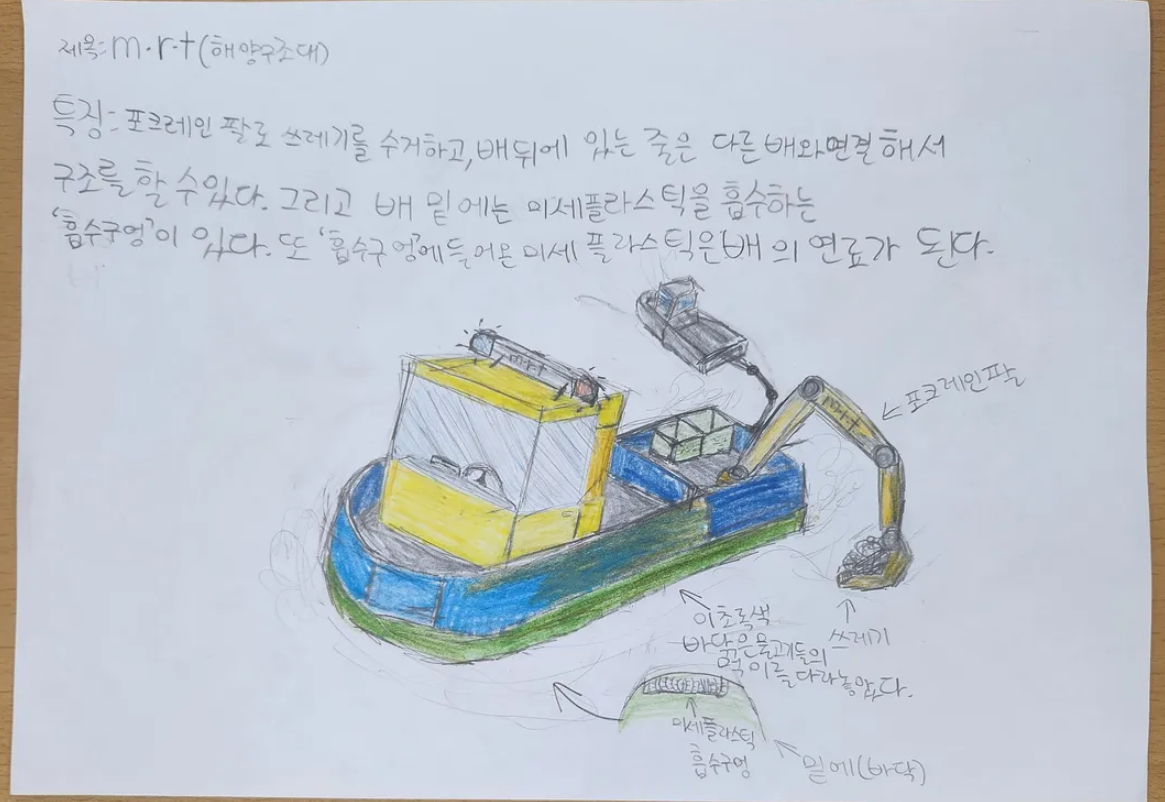 제목: m·r·t(해양구조대)
특징: 포크레인 팔로 쓰레기를 수거하고, 배뒤에 있는 줄은 다른배와연결해서
구조를 할 수있다. 그리고 배 밑에는 미세플라스틱을 흡수하는
'흡수구멍'이 있다. 또 '흡수구멍'에들어온미세플라스틱은배의 연료가 된다.
m·r·t
m·r·t
← 포크레인팔
이초록색
바닥은물고기들의
먹이를다라놓았다.
쓰레기
미세플라스틱
흡수구멍
밑에(바닥)